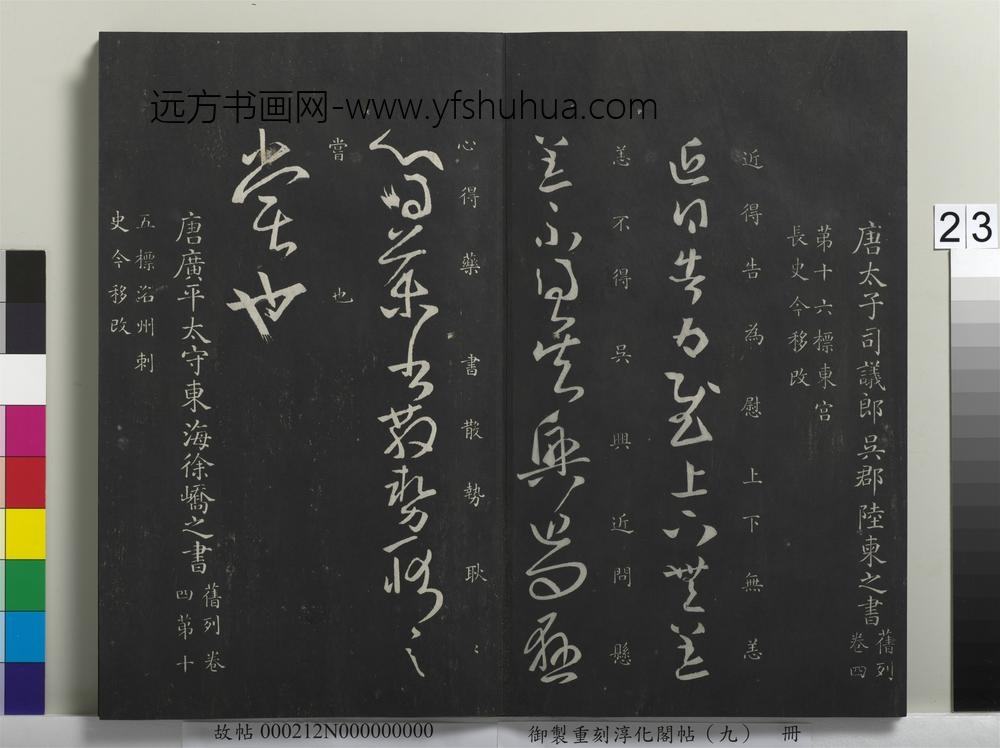 远方书画网-www.yfshuhua.com
23
唐太子司議郎吳郡陸柬之書 舊列
卷四
第十六標東宮
長史今移改
近得告為慰上下無恙
近得告為慰上下無恙
恙不得吳興近問懸
恙不得吳興近問懸
心得藥書散勢耿〻
心得藥書散勢耿〻
嘗也
嘗也
唐廣平太守東海徐嶠之書 舊列卷
四第十
五標洺州刺
史今移改
故帖 000212N000000000
御製重刻淳化閣帖（九） 冊